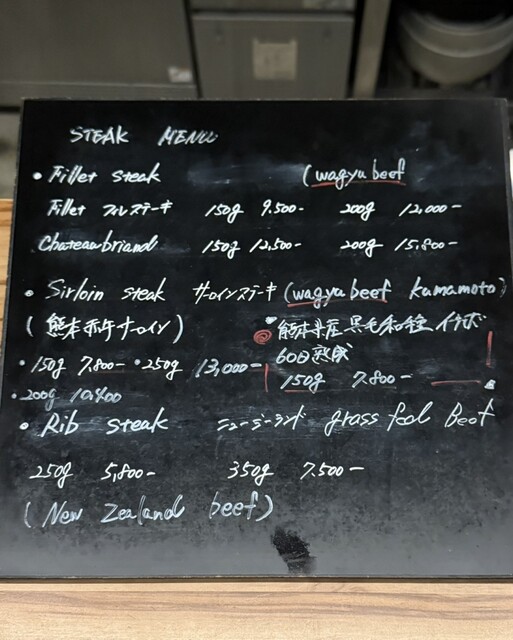 STEAK MENU
• Fillet steak (wagyu beef
Fillet フィレステーキ 150g 9.500- 200g 12,000-
Chateaubriand 150g 12,500- 200g 15,800-
• Sirloin steak サーロインステーキ (wagyu beef Kumamoto)
(熊本赤牛サーロイン)
• 熊本県産黒毛和種 イチボ
60日熟成
• 150g 7,800- • 250g 13,000-
150g 7.800-
• 200g 10,400
• Rib steak ニュージーランド grass fed Beef
250g 5,800- 350g 7.500-
(New Zealand beef)